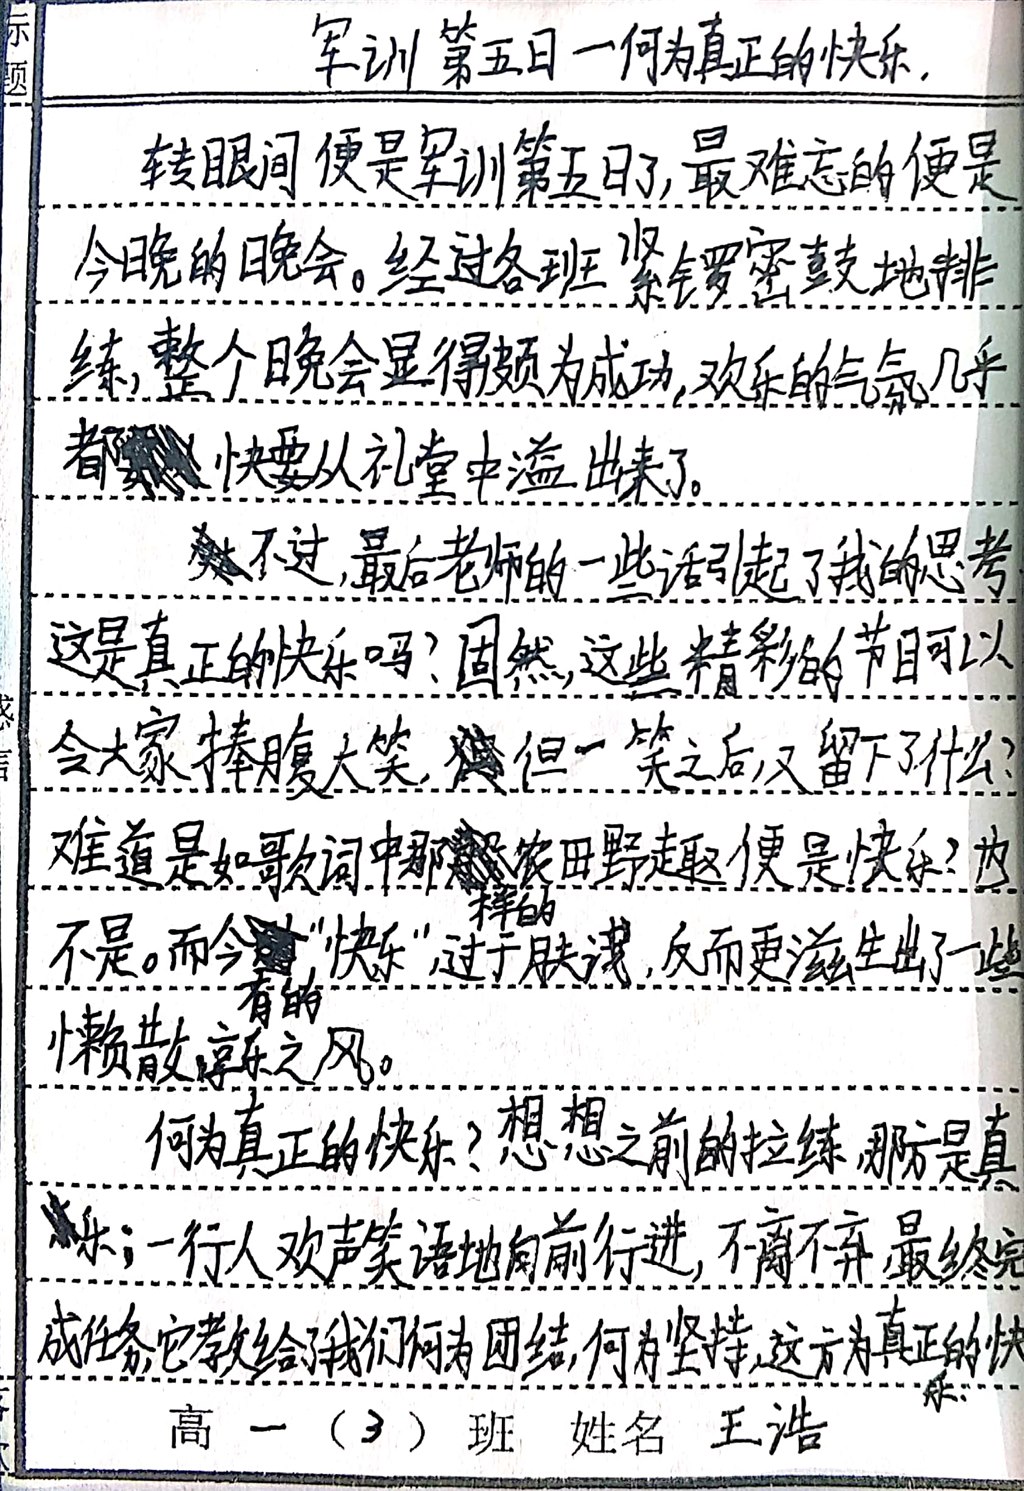 标题
军训第五日一何为真正的快乐.
转眼间便是军训第五日了,最难忘的便是
今晚的晚会。经过各班紧锣密鼓地排
练,整个晚会显得颇为成功,欢乐的气氛几乎
都快要从礼堂中溢出来了。
不过,最后老师的一些话引起了我的思考
这是真正的快乐吗?固然,这些精彩的节目可以
令大家捧腹大笑,但一笑之后,又留下了什么?
难道是如歌词中那样的农田野趣便是快乐?也
不是。而今有的“快乐”,过于肤浅,反而更滋生出了一些
懒散,享乐之风。
何为真正的快乐?想想之前的拉练,那方是真
乐;一行人欢声笑语地向前行进,不离不弃,最终完
成任务,它教给了我们何为团结,何为坚持,这方为真正的快
乐.
高一(3)班 姓名 王浩